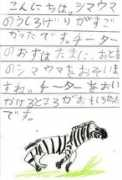 こんにちは。シマウマ
のうしろげりがすご
かったです。チーター
のおすはたまに、おとな
のシマウマをおそいま
すね。チーターをおいか
けるところがおもしろかった
です。